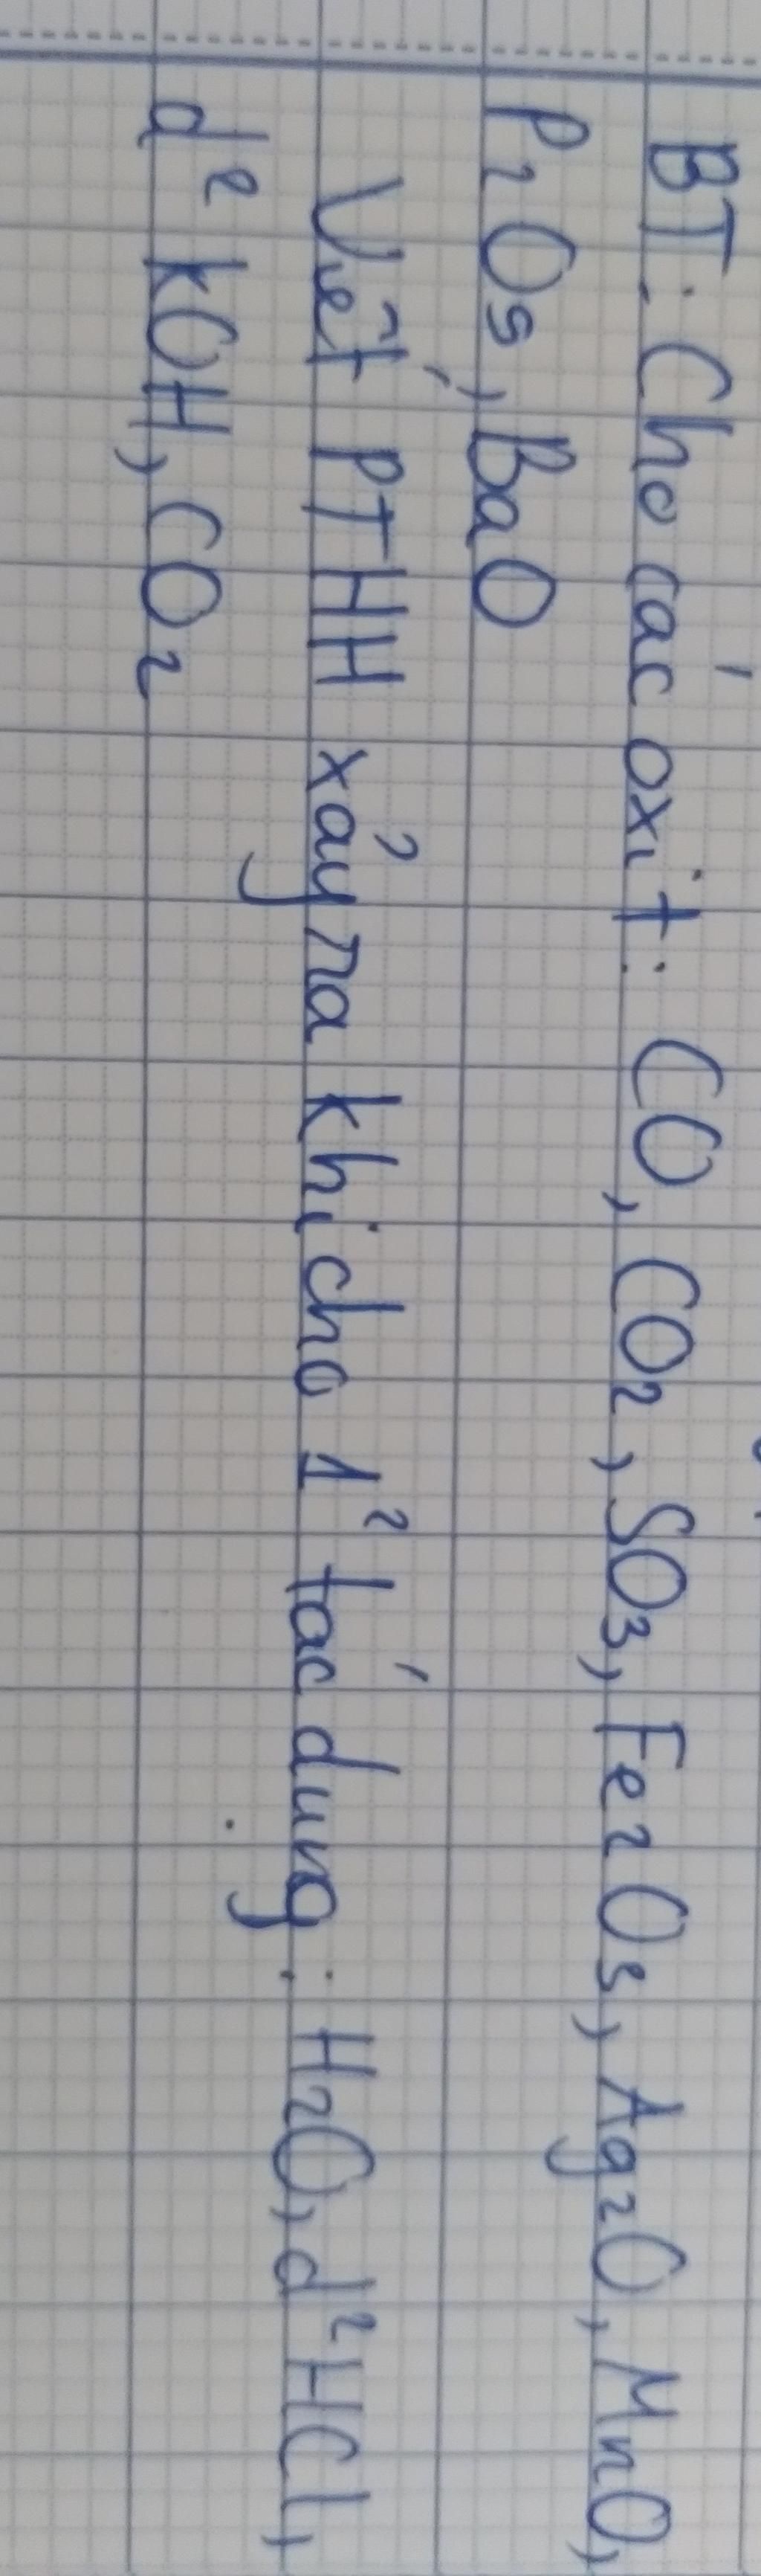 BT: Cho các oxit: CO, CO2, SO3, Fe2O3, Ag2O, MnO,
P2O5, BaO
Viết PTHH xảy ra khi cho 1² tác dụng: H2O, d² HCl,
d² kOH, CO2